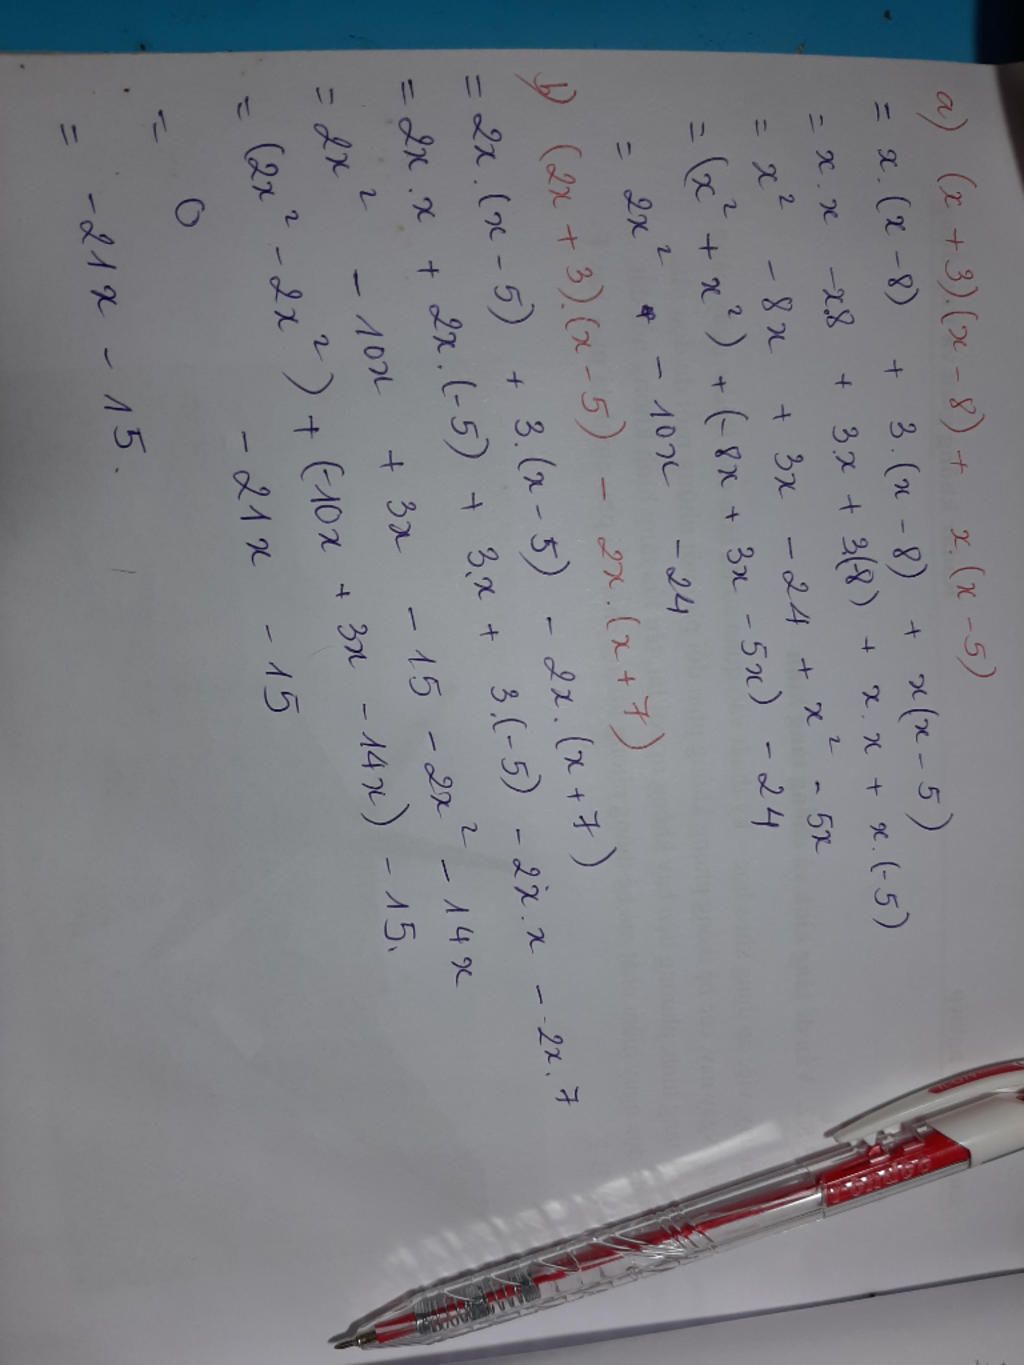 a) (x + 3).(x - 8) + x.(x - 5)
= x.(x - 8) + 3.(x - 8) + x(x - 5)
= x.x - x.8 + 3.x + 3.(-8) + x.x + x.(-5)
= x² - 8x + 3x - 24 + x² - 5x
= (x² + x²) + (-8x + 3x - 5x) - 24
= 2x² - 10x - 24
b) (2x + 3).(x - 5) - 2x.(x + 7)
= 2x.(x - 5) + 3.(x - 5) - 2x.(x + 7)
= 2x.x + 2x.(-5) + 3.x + 3.(-5) - 2x.x - 2x.7
= 2x² - 10x + 3x - 15 - 2x² - 14x
= (2x² - 2x²) + (-10x + 3x - 14x) - 15.
= 0 - 21x - 15
= -21x - 15.